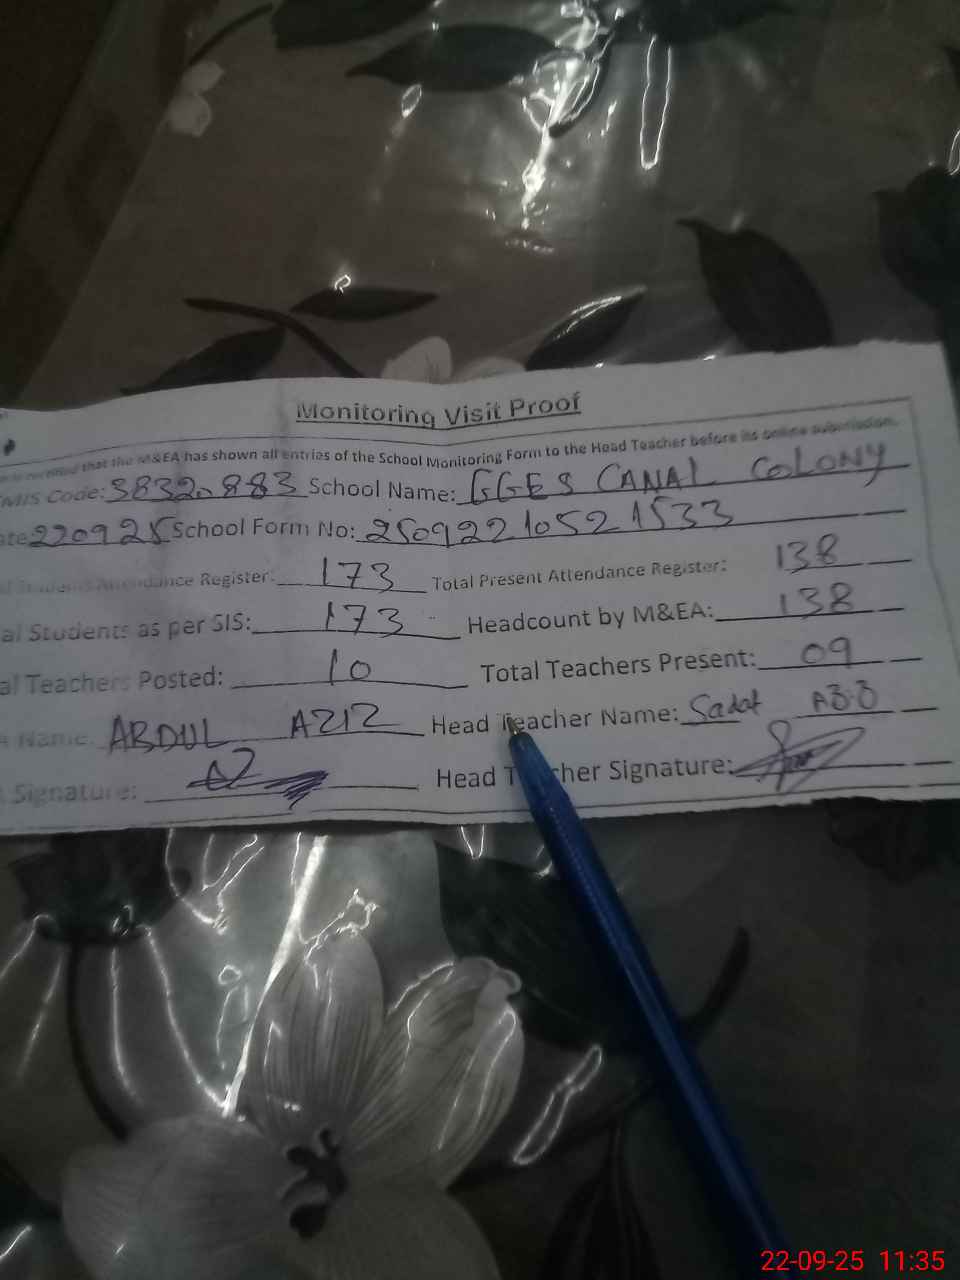 Monitoring Visit Proof
that the M&EA has shown all entries of the School Monitoring Form to the Head Teacher before its online submission.
MIS Code: 38320883 School Name: GGES CANAL COLONY
ate 220925 School Form No: 25092210521533
Students Attendance Register: 173 Total Present Attendance Register: 138
al Students as per SIS: 173 Headcount by M&EA: 138
al Teachers Posted: 10 Total Teachers Present: 09
Name: ABDUL AZIZ Head Teacher Name: Sadat
Signature: Head Teacher Signature:
22-09-25 11:35